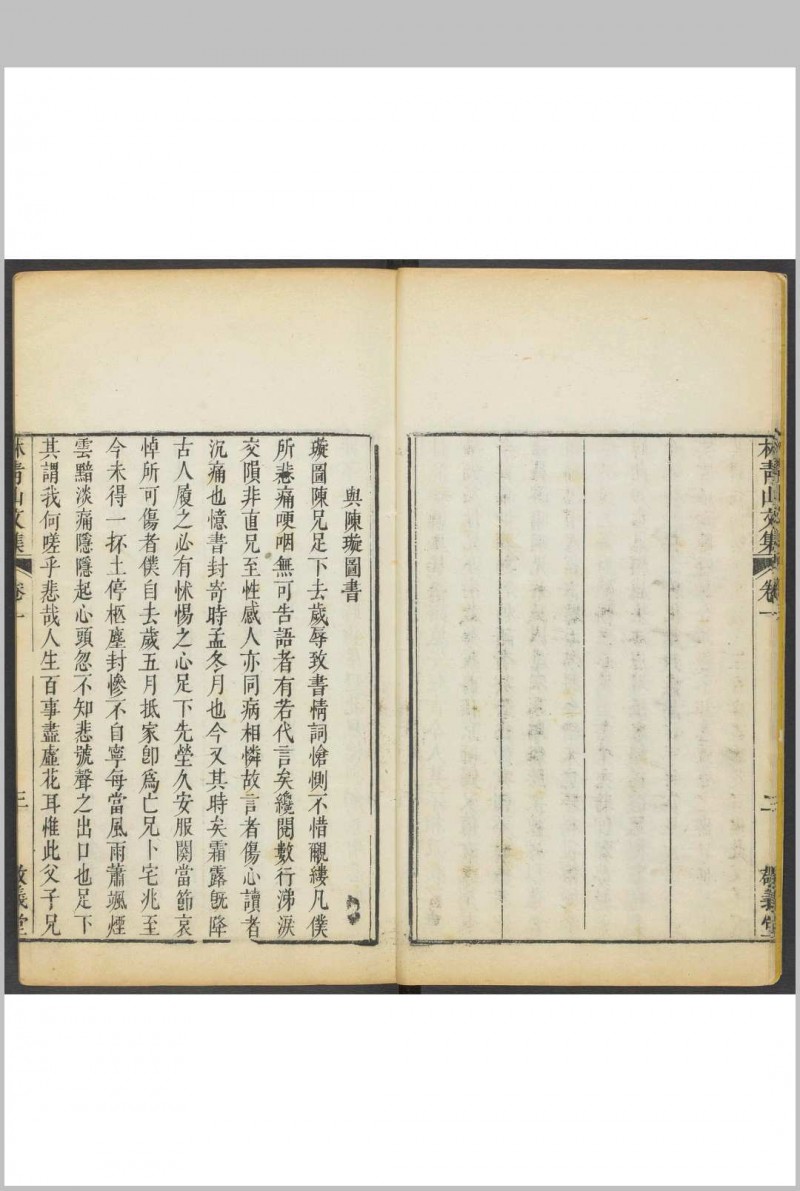 林青山文集
卷一
二
敬義堂
與陳璇圖書
璇圖陳兄足下去歲辱致書情詞愴惻不惜覼縷凡僕
所悲痛哽咽無可告語者有若代言矣纔閱數行涕淚
交隕非直兄至性感人亦同病相憐故言者傷心讀者
沉痛也憶書封寄時孟冬月也今又其時矣霜露旣降
古人履之必有怵惕之心足下先塋久安服闋當節哀
悼所可傷者僕自去歲五月抵家卽爲亡兄卜宅兆至
今未得一抔土停柩塵封慘不自寧每當風雨蕭颯煙
雲黯淡痛隱隱起心頭忽不知悲號聲之出口也足下
其謂我何嗟乎悲哉人生百事盡虛花耳惟此父子兄
林青山文集
卷一
三
敬義堂